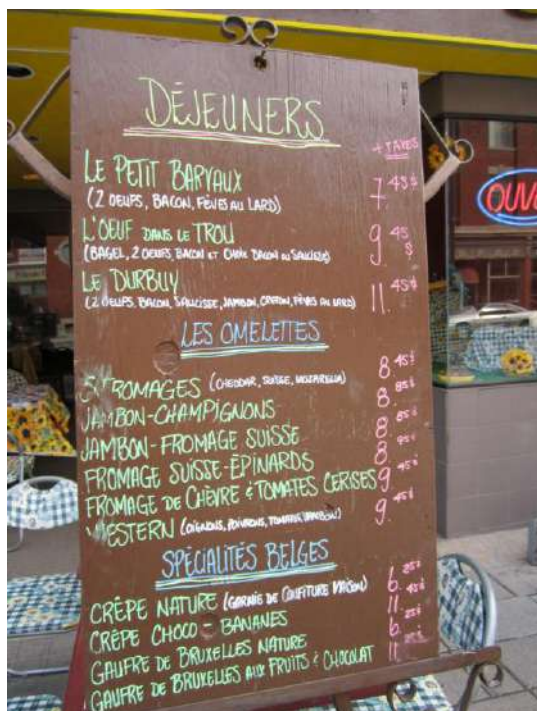 DÉJEUNERS
+ TAXES
LE PETIT BARVAUX 7.45$
(2 OEUFS, BACON, FÈVES AU LARD)
L'OEUF DANS LE TROU 9.45$
(BAGEL, 2 OEUFS, BACON ET CHOIX BACON OU SAUCISSE)
LE DURBUY 11.45$
(2 OEUFS, BACON, SAUCISSE, JAMBON, CRETON, FÈVES AU LARD)
LES OMELETTES
3 FROMAGES (CHEDDAR, SUISSE, MOZARELLA) 8.45$
JAMBON-CHAMPIGNONS 8.95$
JAMBON-FROMAGE SUISSE 8.95$
FROMAGE SUISSE-ÉPINARDS 8.95$
FROMAGE DE CHÈVRE & TOMATES CERISES 9.45$
WESTERN (OIGNONS, POIVRONS, TOMATE, JAMBON) 9.45$
SPÉCIALITÉS BELGES
CRÊPE NATURE (GARNIE DE CONFITURE MAISON) 6.25$
CRÊPE CHOCO-BANANES 11.45$
GAUFRE DE BRUXELLES NATURE 6.25$
GAUFRE DE BRUXELLES AUX FRUITS & CHOCOLAT 11.
OUV